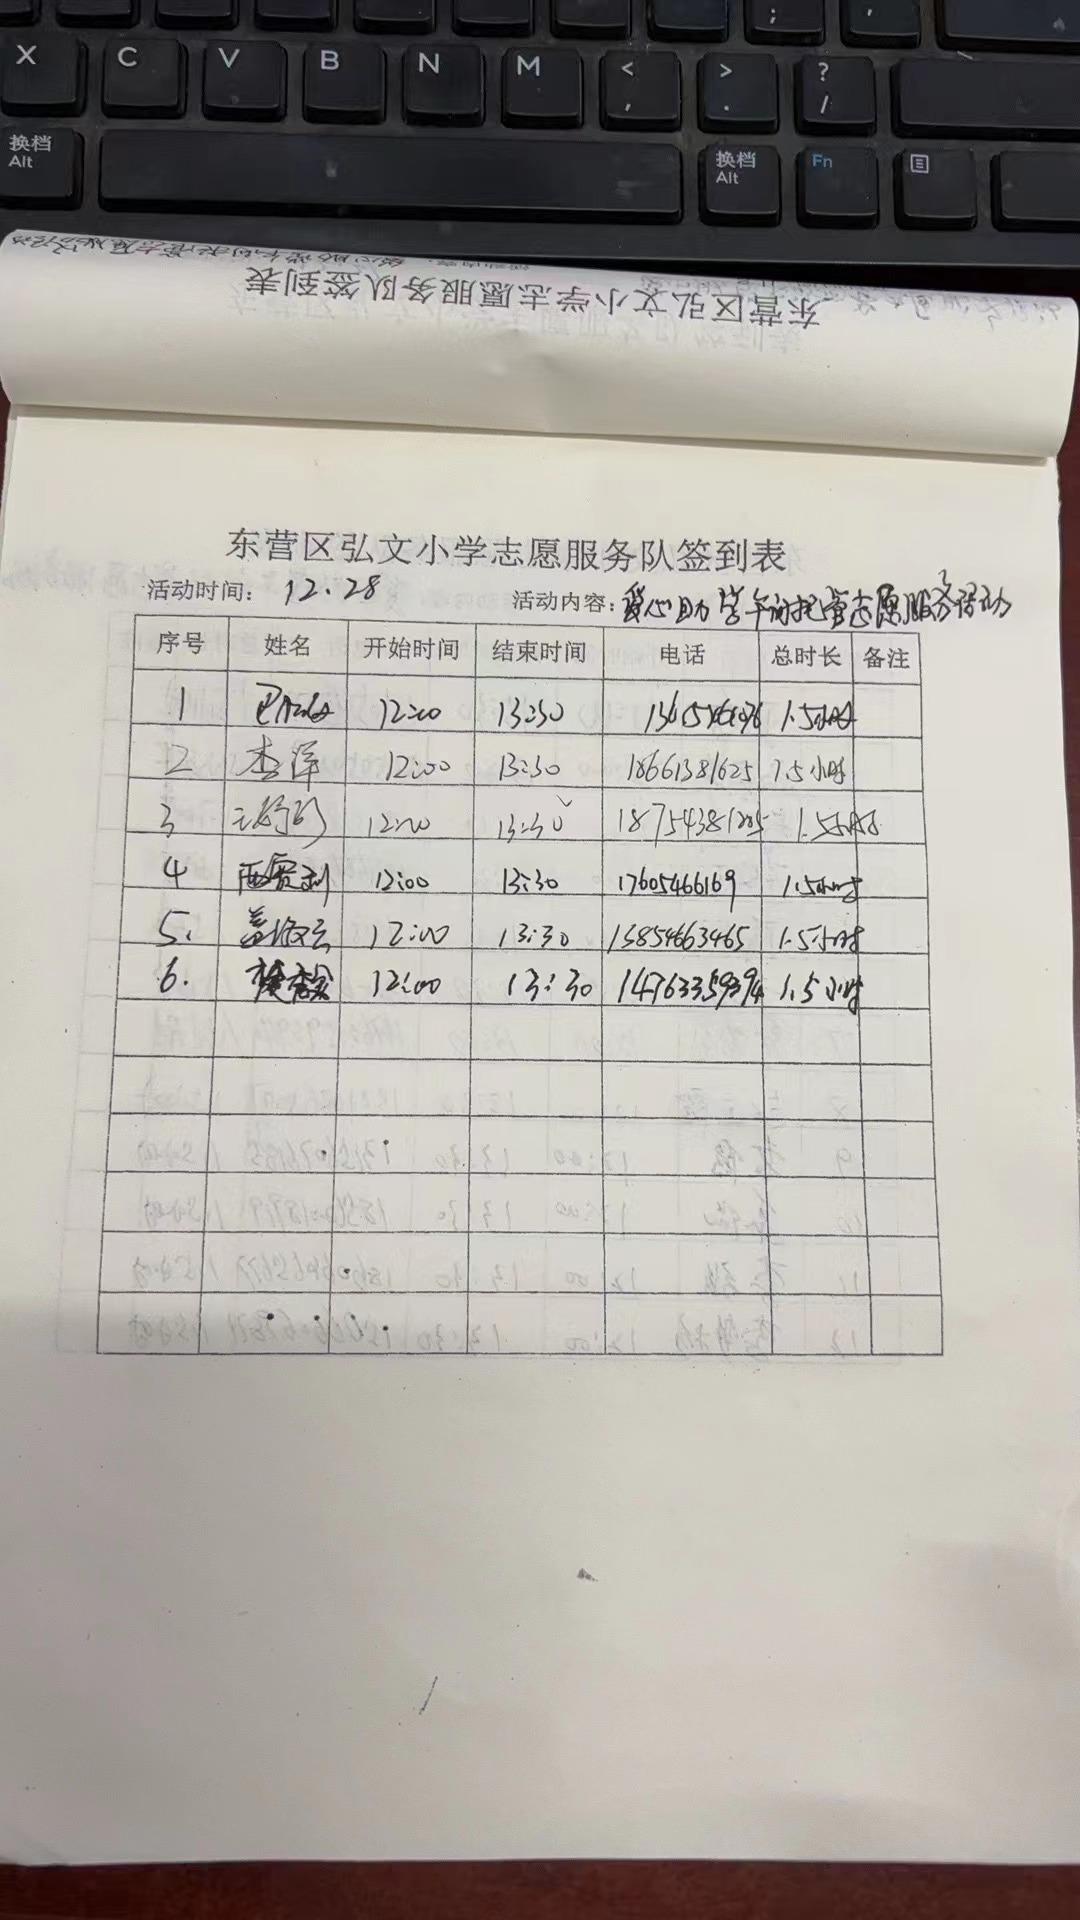 X C V B N M < , > . ? / ; '
换档 Alt 换档 Alt Fn
东营区弘文小学志愿服务队签到表
东营区弘文小学志愿服务队签到表
活动时间: 12.28 活动内容: 爱心助学午间托管志愿服务活动
序号 姓名 开始时间 结束时间 电话 总时长 备注
1 12:00 13:30 1.5小时
2 李洋 12:00 13:30 18661381625 1.5小时
3 12:00 13:30 1.5小时
4 12:00 13:30 17605466169 1.5小时
5. 盖海云 12:00 13:30 15854663465 1.5小时
6. 12:00 13:30 14763359394 1.5小时